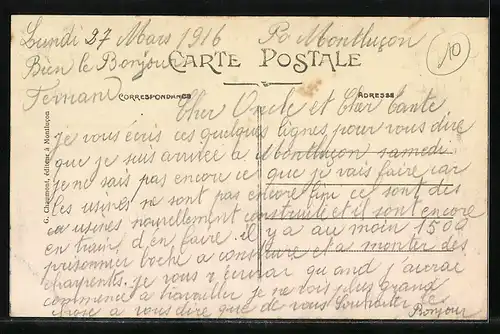 Lundi 27 Mars 1916 Po Montluçon
10
Bien le Bonjour CARTE POSTALE
Fernand CORRESPONDANCE ADRESSE
Cher Oncle et Cher tante
je vous écris ces quelques lignes pour vous dire
que je suis arrivée a Montluçon samedi
je ne sais pas encore ce que je vais faire car
les usines ne sont pas encore fini ce sont des
usines nouvellement construite et il sont encore
en train d'en faire. il y a au moin 1500
prisonnier boche a construire et a monter des
charpents. je vous récrirai quand j'aurai
commencé a travailler je ne vois plus grand
chose a vous dire que de vous souhaiter le
Bonjour
G. Chaumont, éditeur à Montluçon